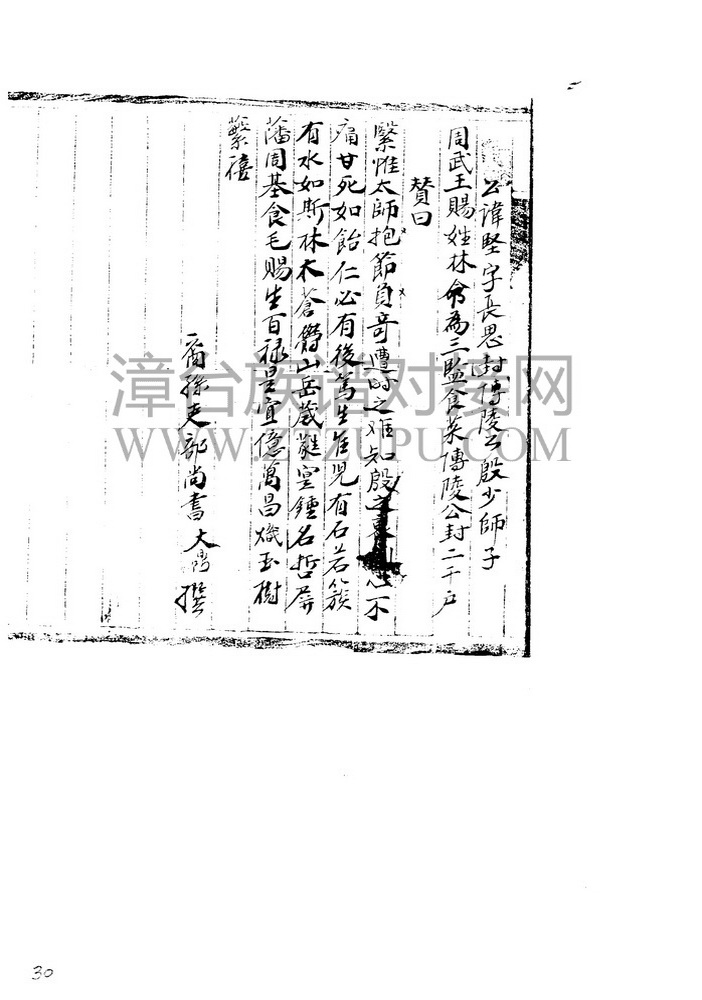 公諱堅字長思封博陵公殷少師子
周武王賜姓林命為三監食菜博陵公封二千戶
贊曰
繄惟太師抱節負奇遭時之难知殷之 心不
痛甘死如飴仁必有後篤生隹児有石若簇
有水如斯林木蒼欝山岳葳蕤寔鍾名哲屏
藩周基食毛賜生百祿是宜億萬昌熾玉樹
繁禧
裔孫吏部尚書大 撰
漳台族谱对接网
WWW.ZTZUPU.COM
30